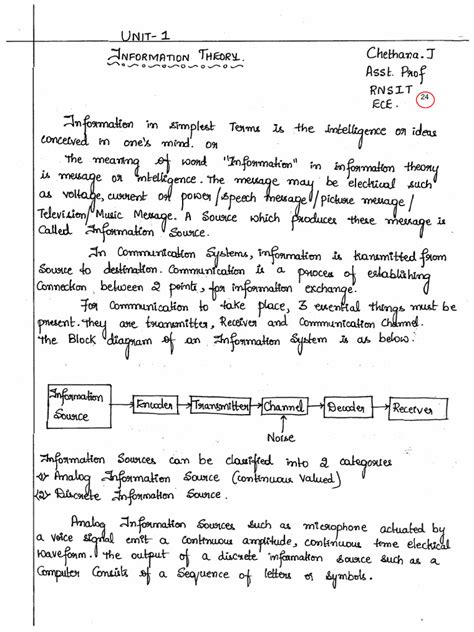 UNIT-1
INFORMATION THEORY.
Chethana. J
Asst. Prof
RNSIT
ECE.
24
Information in simplest Terms is the intelligence or ideas
conceived in one's mind. or
The meaning of word "Information" in information theory
is message or intelligence. The message may be electrical such
as voltage, current or power/speech message/picture message/
Television/Music Message. A Source which produces these message is
Called Information Source.
In Communication Systems, information is transmitted from
Source to destination. Communication is a process of establishing
Connection between 2 points, for information exchange.
For Communication to take place, 3 essential things must be
present. they are transmitter, Receiver and Communication Channel.
the Block diagram of an Information System is as below:
Information
Source
Encoder
Transmitter
Channel
Decoder
Receiver
Noise
Information Sources can be classified into 2 categories
(1) Analog Information Source (continuous valued)
(2) Discrete Information Source.
Analog Information Sources such as microphone actuated by
a voice signal emit a continuous amplitude, continuous time electrical
waveform. the output of a discrete information source such as a
Computer Consists of a Sequence of letters or symbols.